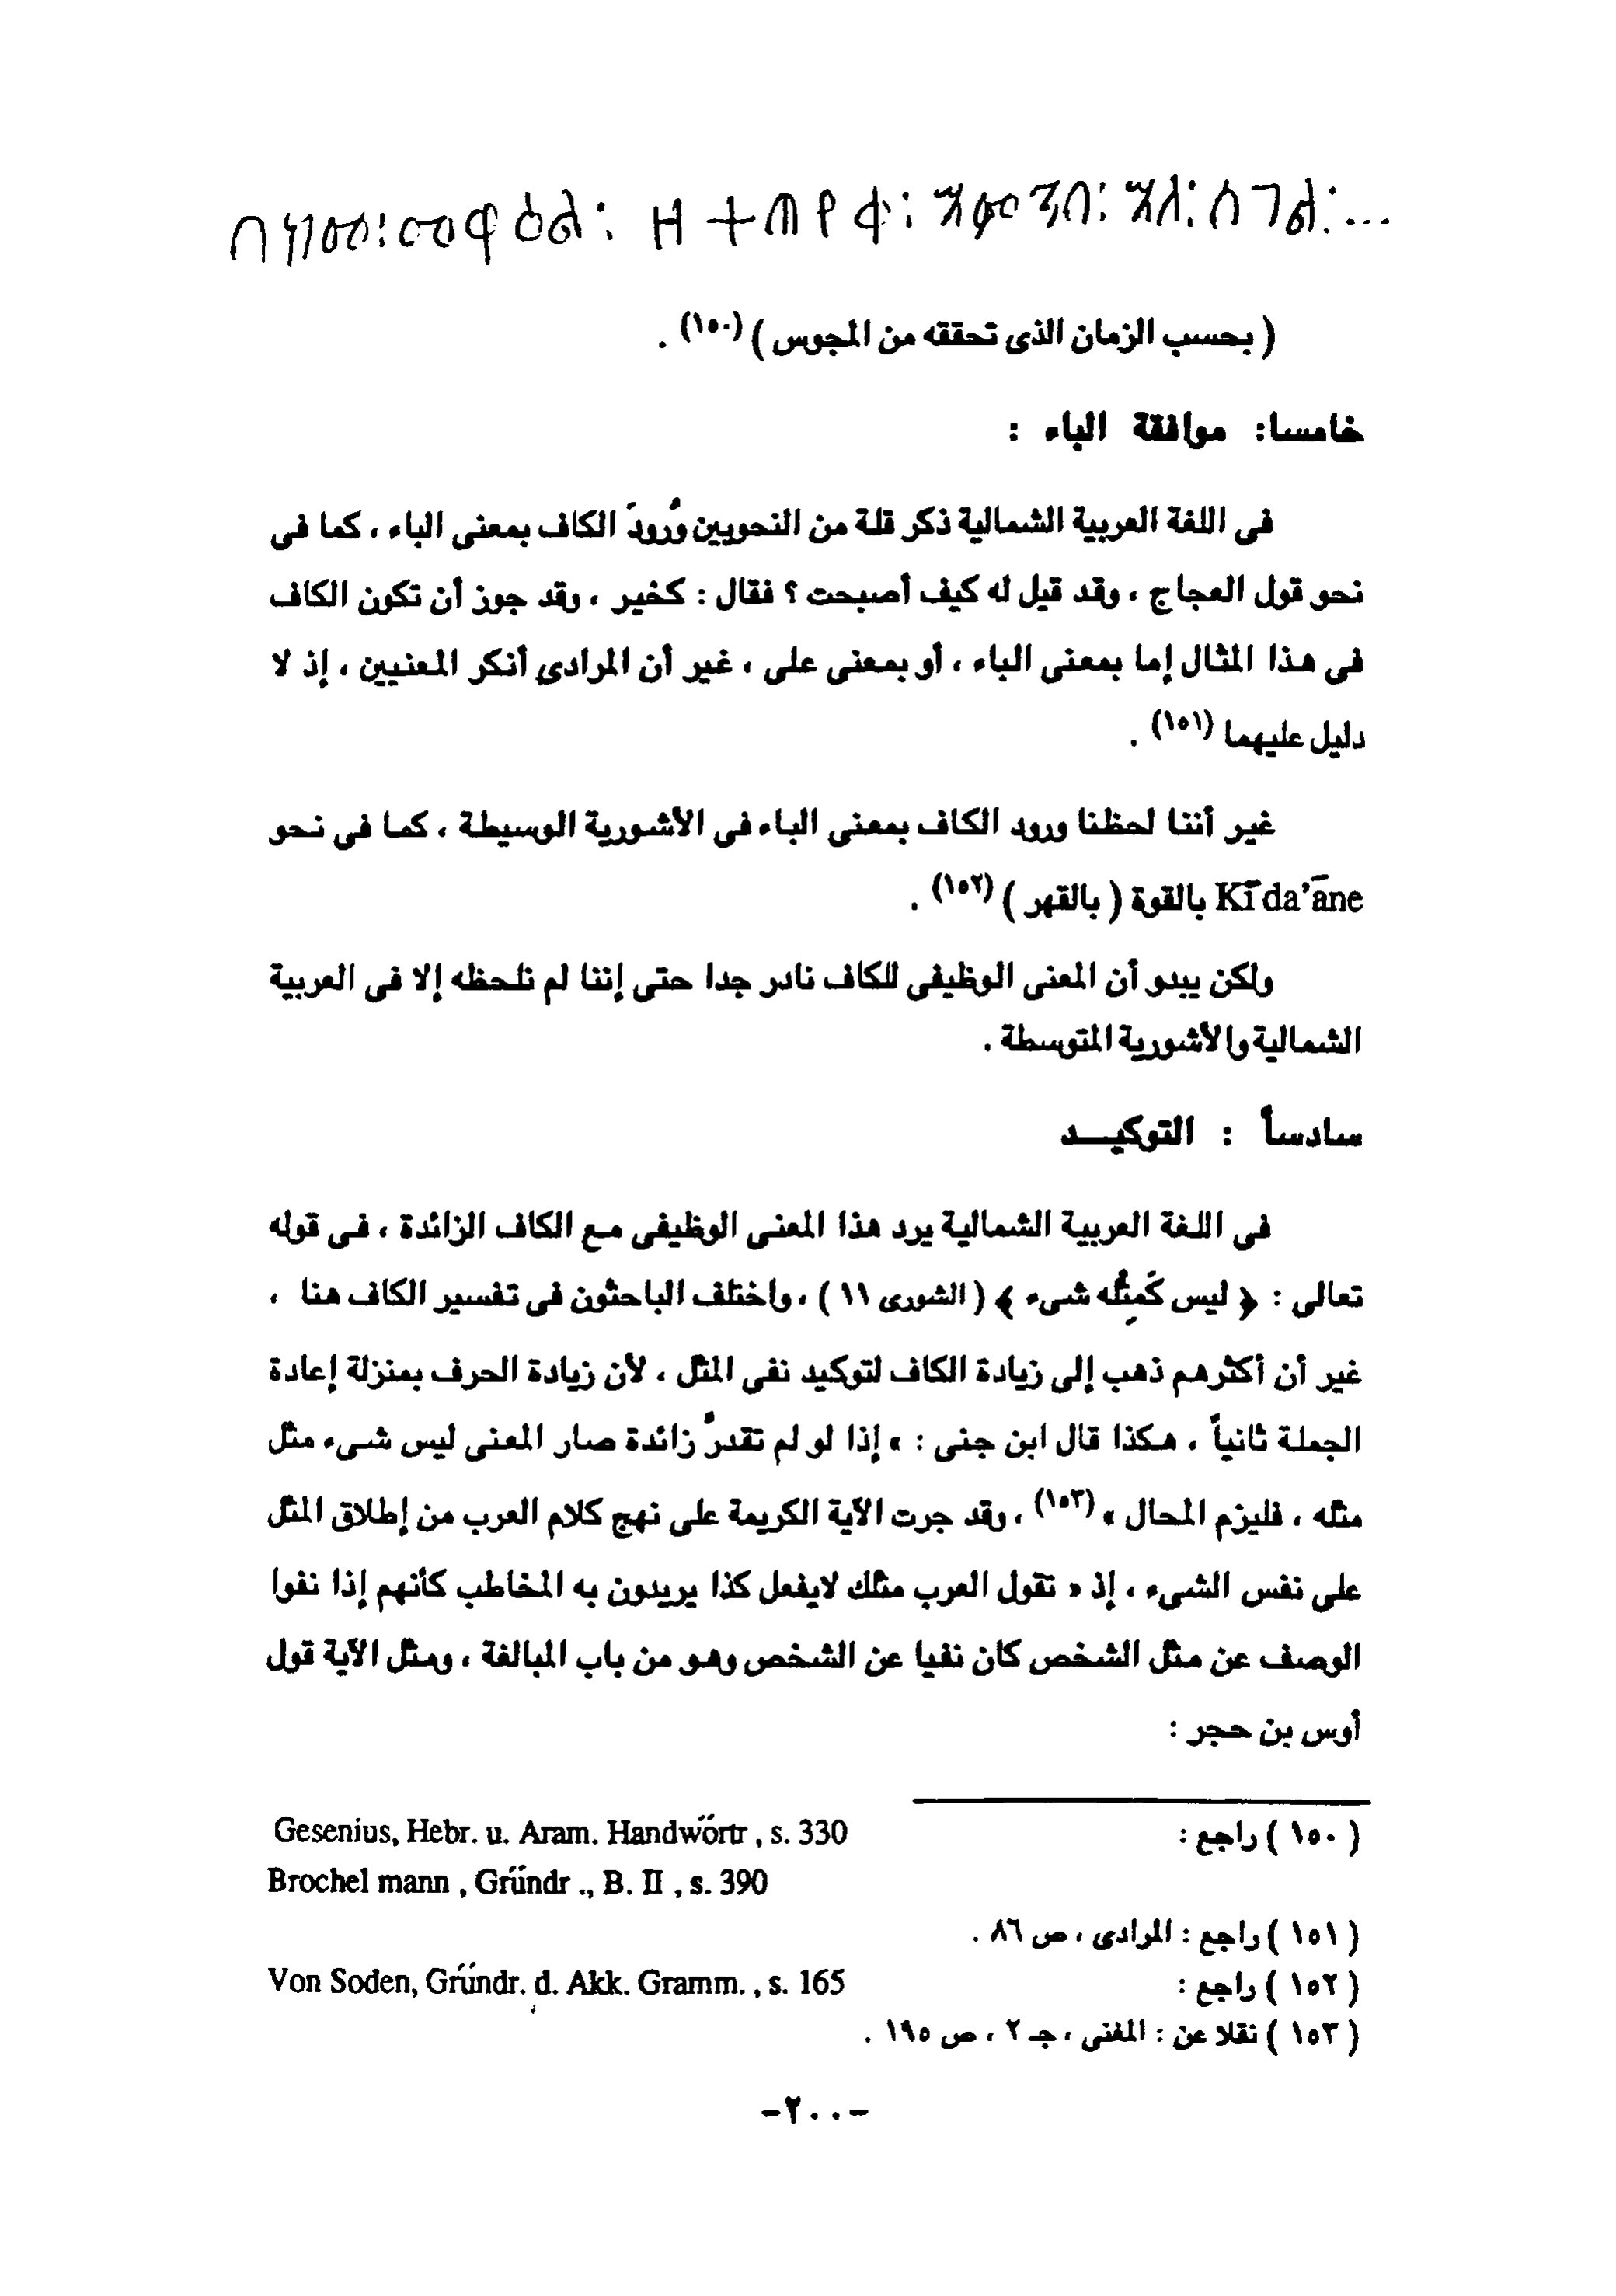 መዋዕል፡ ዘተጠየቀ፡ እምኀበ፡ እለ፡ ሰገል፡...
( بحسب الزمان الذى تحققه من المجوس ) (١٥٠) .
خامسا: موافقة الباء :
فى اللغة العربية الشمالية ذكر قلة من النحويين وُرودَ الكاف بمعنى الباء ، كما فى
نحو قول العجاج ، وقد قيل له كيف أصبحت ؟ فقال : كخير ، وقد جوز أن تكون الكاف
فى هذا المثال إما بمعنى الباء ، أو بمعنى على ، غير أن المرادى أنكر المعنيين ، إذ لا
دليل عليهما (١٥١) .
غير أننا لحظنا ورود الكاف بمعنى الباء فى الأشورية الوسيطة ، كما فى نحو
Kī da'āne بالقوة ( بالقهر ) (١٥٢) .
ولكن يبدو أن المعنى الوظيفى للكاف نادر جدا حتى إننا لم نلحظه إلا فى العربية
الشمالية والأشورية المتوسطة .
سادسأ : التوكيــد
فى اللغة العربية الشمالية يرد هذا المعنى الوظيفى مع الكاف الزائدة ، فى قوله
تعالى : ﴿ ليس كَمِثُله شىء ﴾ ( الشورى ١١ ) ، واختلف الباحثون فى تفسير الكاف هنا ،
غير أن أكثرهم ذهب إلى زيادة الكاف لتوكيد نفى المثل ، لأن زيادة الحرف بمنزلة إعادة
الجملة ثانياً ، هكذا قال ابن جنى : « إذا لو لم تقدرٌ زائدة صار المعنى ليس شىء مثل
مثله ، فليزم المحال » (١٥٣) ، وقد جرت الآية الكريمة على نهج كلام العرب من إطلاق المثل
على نفس الشىء ، إذ « تقول العرب مثلك لايفعل كذا يريدون به المخاطب كأنهم إذا نفوا
الوصف عن مثل الشخص كان نفيا عن الشخص وهو من باب المبالغة ، ومثل الآية قول
أوس بن حجر :
( ١٥٠ ) راجع : Gesenius, Hebr. u. Aram. Handwörtr , s. 330
Brochel mann , Gründr ., B. II , s. 390
( ١٥١ ) راجع : المرادى ، ص ٨٦ .
( ١٥٢ ) راجع : Von Soden, Gründr. d. Akk. Gramm. , s. 165
( ١٥٣ ) نقلا عن : المغنى ، جـ ٢ ، ص ١٩٥ .
-٢٠٠-